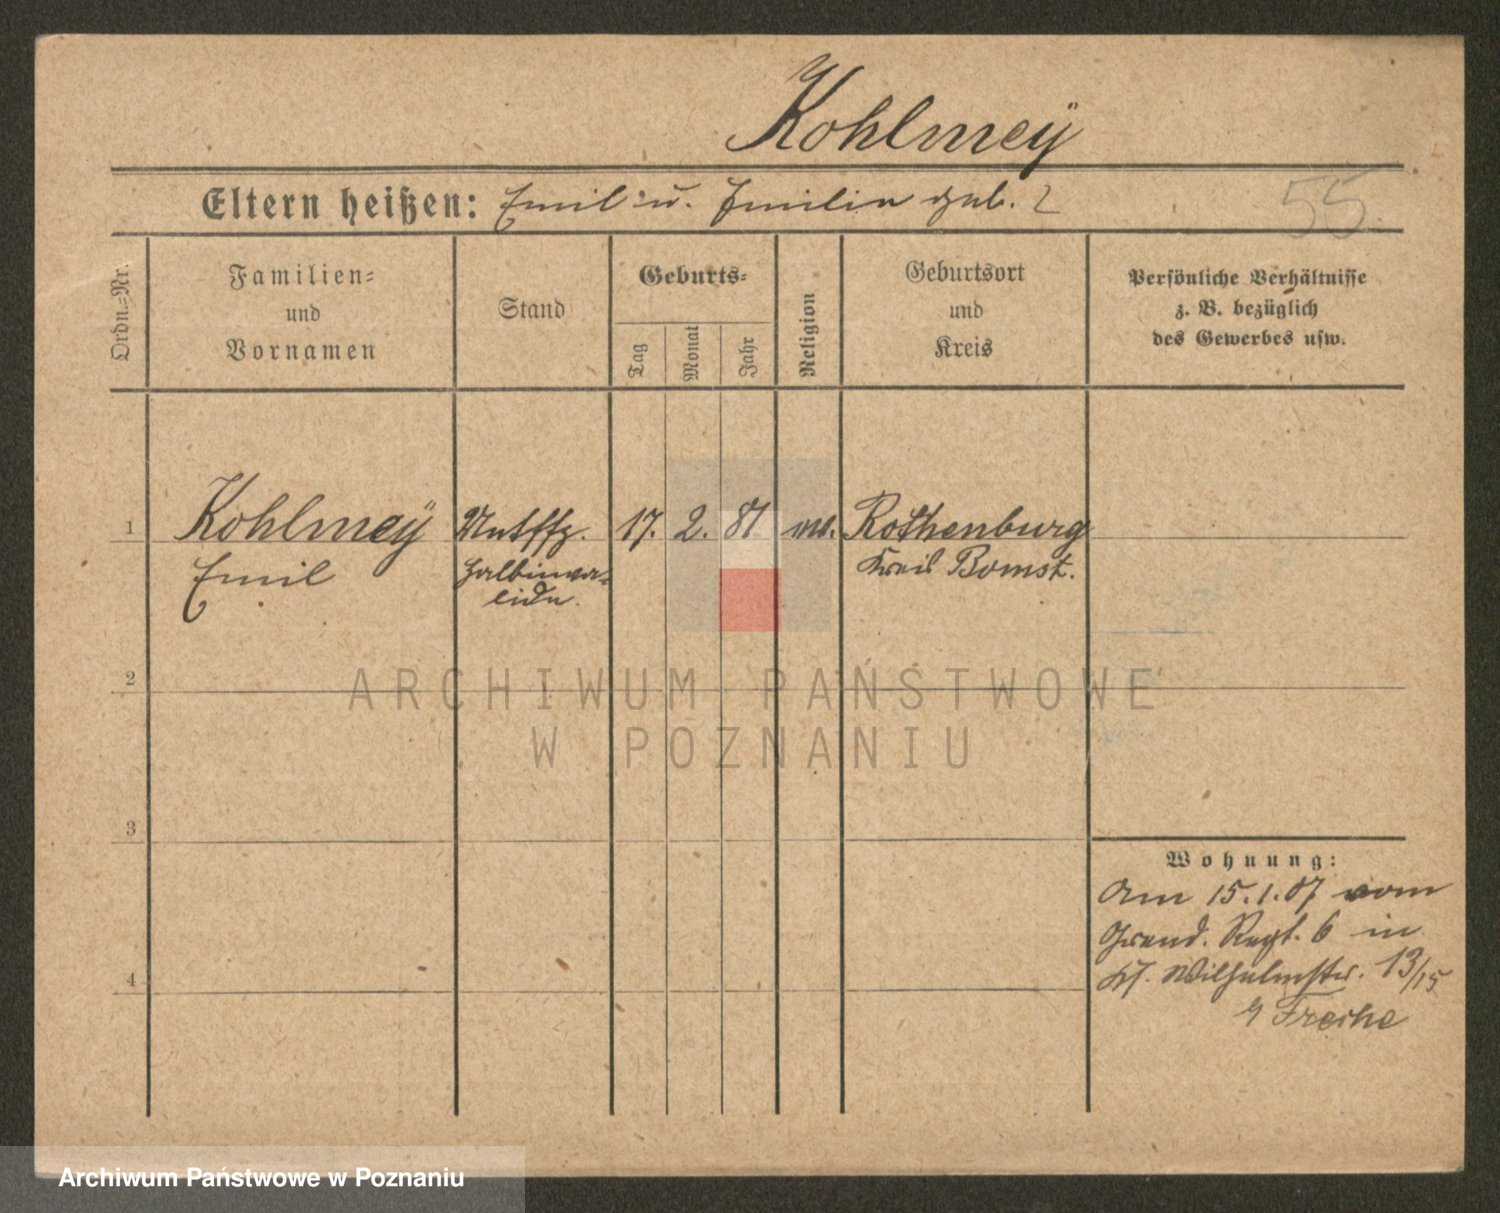 Kohlmeÿ
Eltern heißen: Emil u. Emilie geb. ?
55
Ordn.=Nr.
Familien=
und
Vornamen
Stand
Geburts=
Tag
Monat
Jahr
Religion
Geburtsort
und
Kreis
Persönliche Verhältnisse
z. B. bezüglich
des Gewerbes usw.
1 Kohlmeÿ 17. 2. 81. Rothenburg
Emil Kreis Bomst.
Halbinva=
lide.
2
ARCHIWUM PAŃSTWOWE
W POZNANIU
3
Wohnung:
Am 15.1.07 vom
Gren. Regt. 6 in
Wilhelmstr. 13/15
4
Archiwum Państwowe w Poznaniu